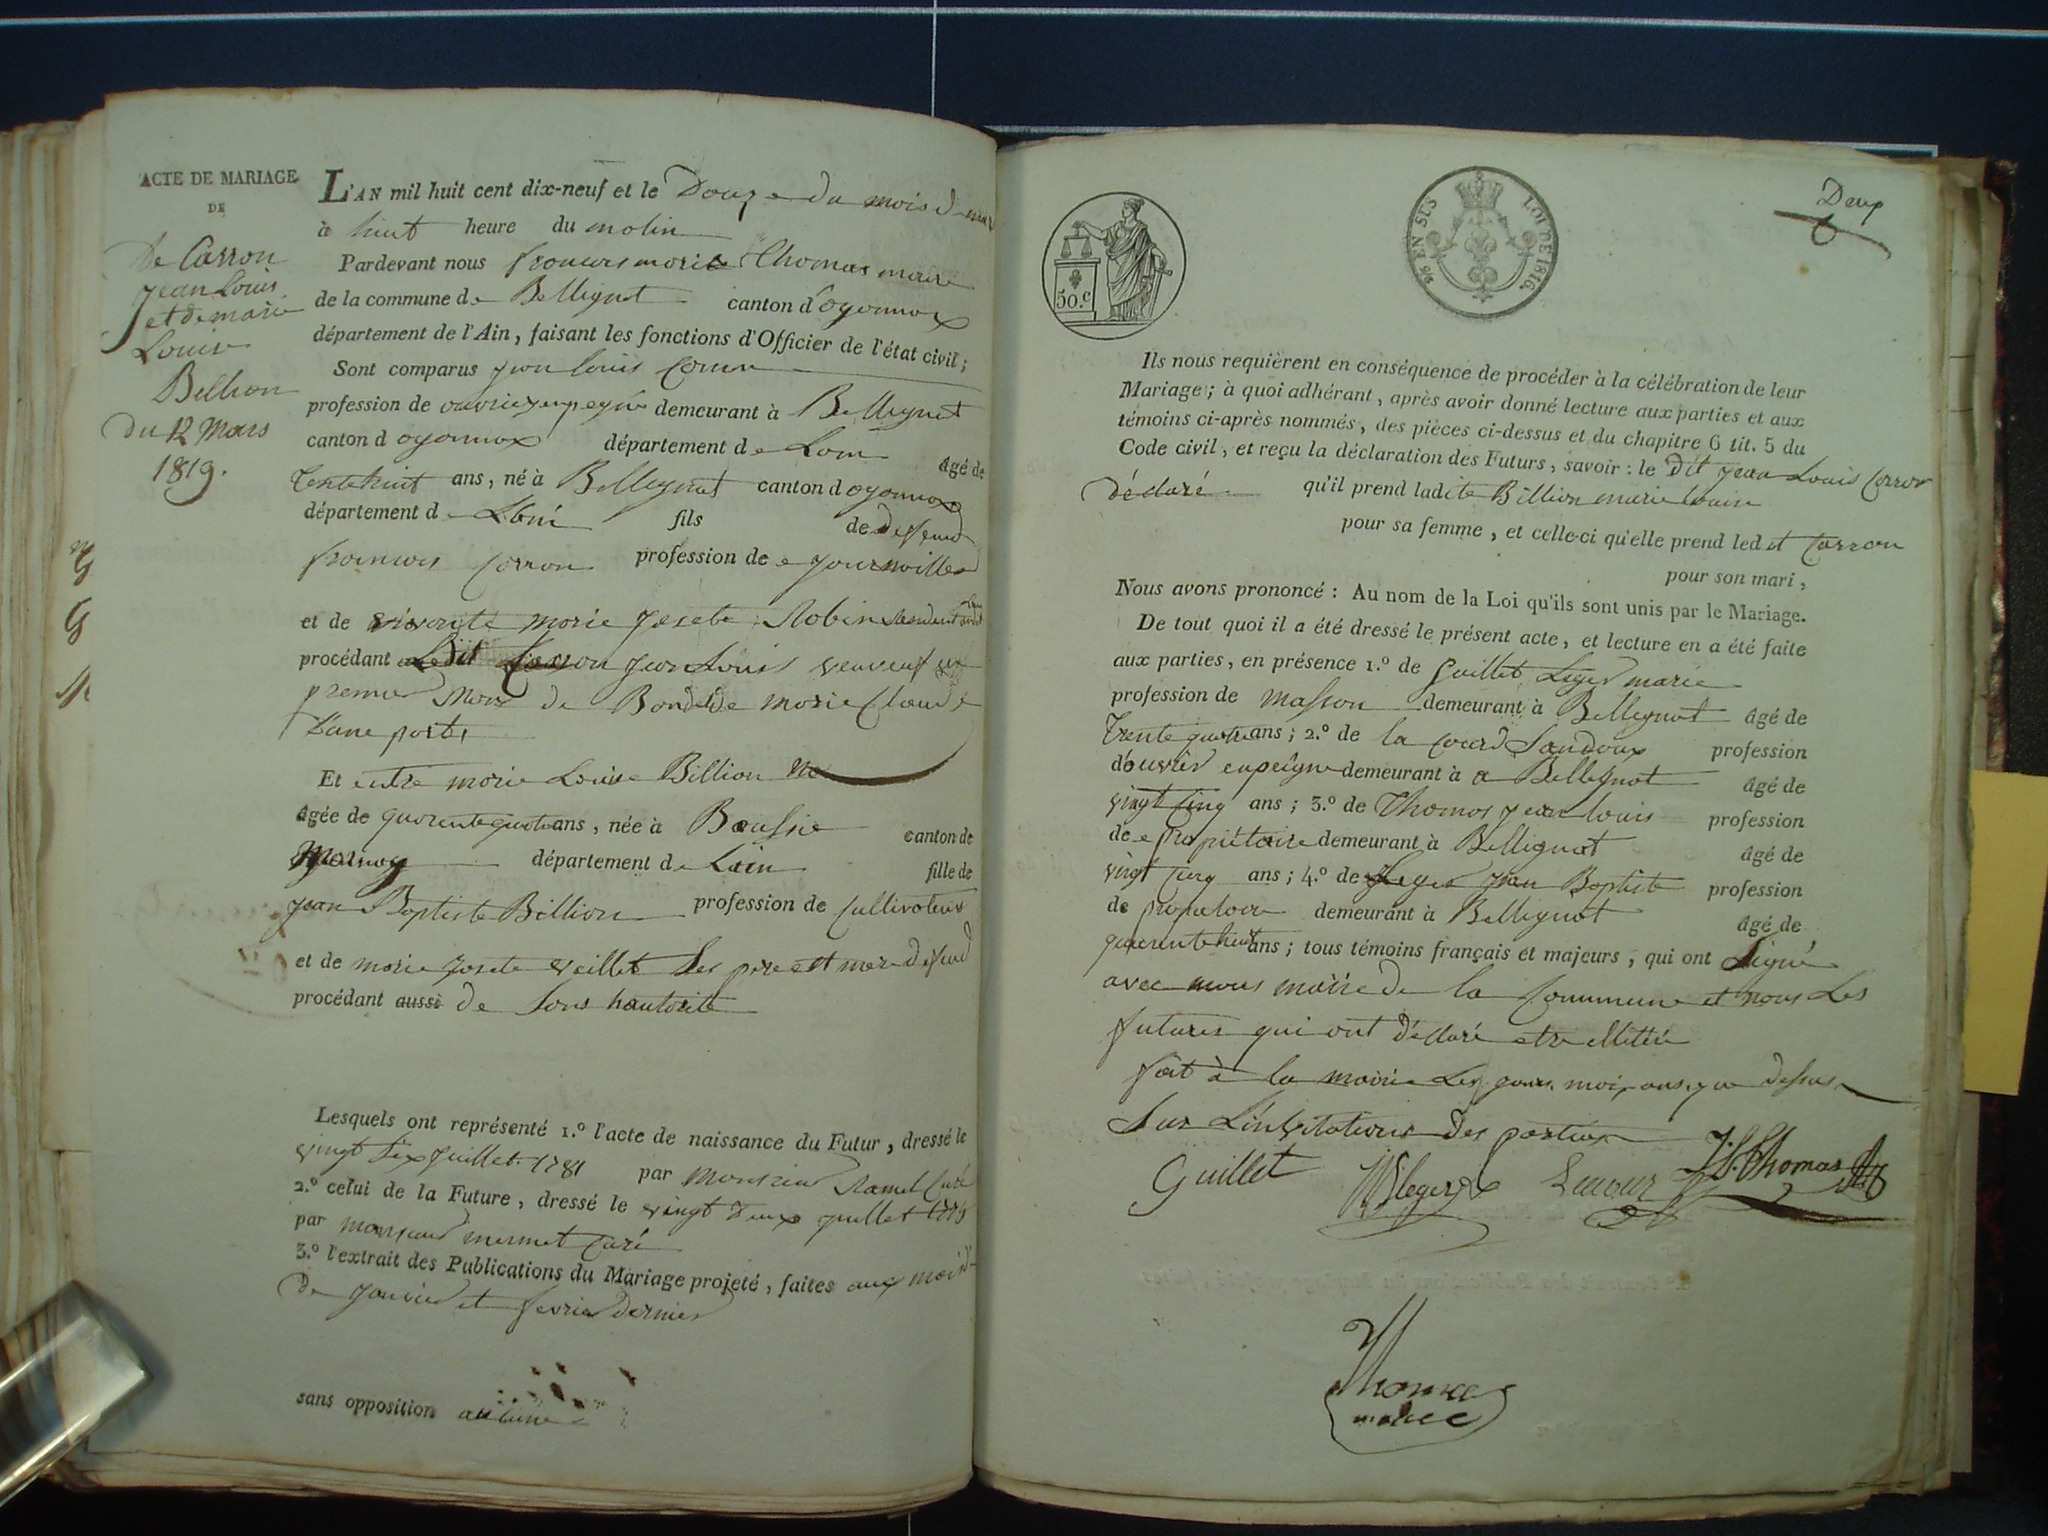 ACTE DE MARIAGE
DE
de Carron
jean Louis
et de marie
Louise
Billion
Du 12 Mars
1819.
L'AN mil huit cent dix-neuf et le Douze du mois d mars
à huit heure du matin
Pardevant nous francois marie Thomas maire
de la commune de Bellignat canton d'oyonnax
département de l'Ain, faisant les fonctions d'Officier de l'état civil;
Sont comparus jean louis Carron
profession de ouvrier en peigne demeurant à Bellignat
canton d oyonnax département de Lain âgé de
Trentehuit ans, né à Bellegnat canton d oyonnax
département de Lain fils de deffeund
francois Carron profession de journallier
et de marie Josete Robin
procédant Ledit Carron jean Louis veuveuf
premier de Bondet de marie Claude
D'une part,
Et entre marie Louise Billion
âgée de quarentequatre ans, née à canton de
département de Lain fille de
jean Baptiste Billion profession de Cultivateur
et de marie josete veillet Ses père et mere defund
procédant aussi de Sons hautorité
Lesquels ont représenté 1.º l'acte de naissance du Futur, dressé le
vingt Six juillet 1781 par Monsieur Ramel Curé
2.º celui de la Future, dressé le vingt Deux juillet 1775
par monsieur mermet Curé
3.º l'extrait des Publications du Mariage projeté, faites aux mois d
De Janvier et fevrier Dernier
sans opposition aucune
50.C
EN SUS
LOI DE 1816.
Deux
Ils nous requièrent en conséquence de procéder à la célébration de leur
Mariage; à quoi adhérant, après avoir donné lecture aux parties et aux
témoins ci-après nommés, des pièces ci-dessus et du chapitre 6 tit. 5 du
Code civil, et reçu la déclaration des Futurs, savoir: le Dit Jean Louis Carron
déclaré qu'il prend ladite Billion marie louise
pour sa femme, et celle-ci qu'elle prend ledit Carron
pour son mari,
Nous avons prononcé: Au nom de la Loi qu'ils sont unis par le Mariage.
De tout quoi il a été dressé le présent acte, et lecture en a été faite
aux parties, en présence 1.º de Guillet Leger marie
profession de Masson demeurant à Bellegnat âgé de
Trente quatre ans; 2.º de la Sandoux profession
d'ouvrier enpeigne demeurant à a Bellegnat âgé de
vingt Cinq ans; 3.º de Thomas jean louis profession
de propriétaire demeurant à Bellignat âgé de
vingt Cinq ans; 4.º de Leger Jean Baptiste profession
de demeurant à Bellignat âgé de
quarentehuit ans; tous témoins français et majeurs, qui ont Signé
avec nous maire de la Commune et nous Les
futures qui ont Déclaré etre
fait à la mairie Les jours, mois, ans, que dessus
Sur L'invitations Des parties
Guillet Leger J. L. Thomas
Thomas
maire